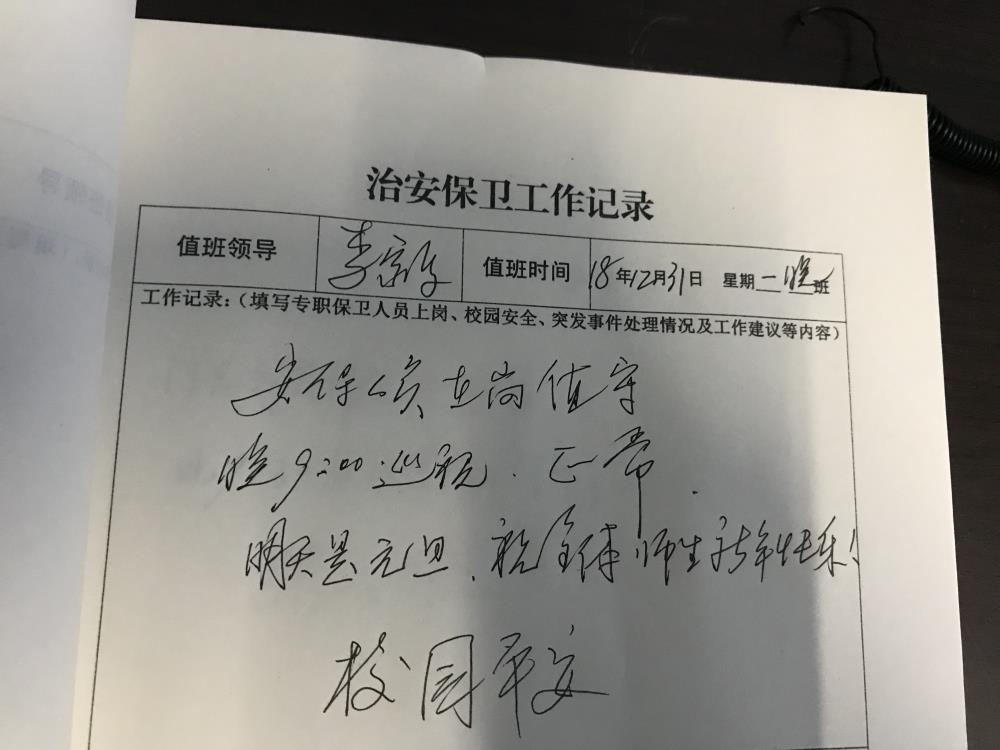 治安保卫工作记录
值班领导 李 值班时间 18年12月31日 星期一晚班
工作记录:(填写专职保卫人员上岗、校园安全、突发事件处理情况及工作建议等内容)
安保人员在岗值守
晚9:00巡视.正常.
明天是元旦、祝全体师生新年快乐!
校园平安